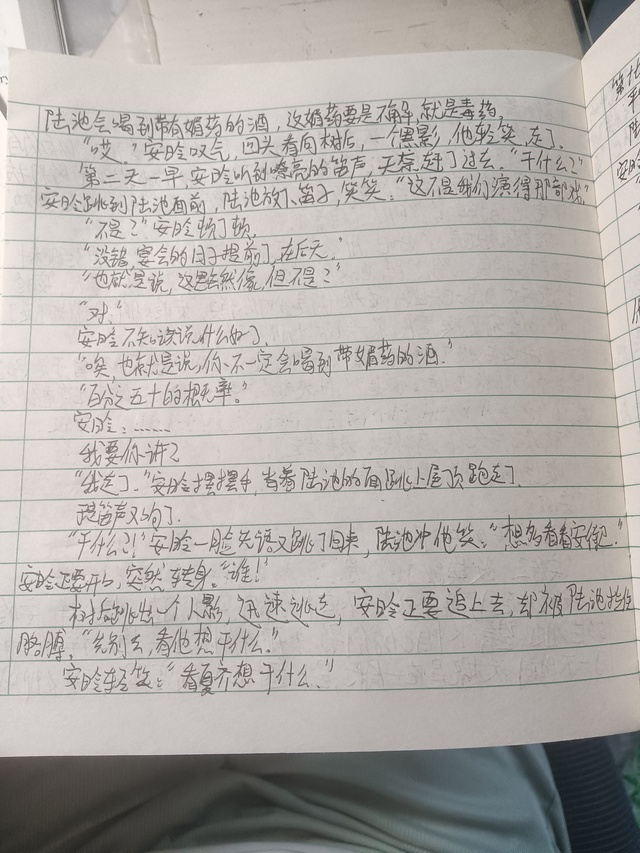 陆池会喝到带有媚药的酒，这媚药要是不解，就是毒药。
"哎。"安昤叹气，回头看向树后，一个黑影，他轻笑，走了。
第二天一早，安昤听到嘹亮的笛声，无奈，赶了过去。"干什么？"
安昤跳到陆池面前，陆池放下笛子，笑笑："这不是我们演得那部戏。"
"不是？"安昤顿了顿。
"没错，宴会的日子提前了，在后天。"
"也就是说，这里虽然像，但不是？"
"对。"
安昤不知该说什么好了。
"唉，也就是说，你不一定会喝到带媚药的酒。"
"百分之五十的概率。"
安昤：……
我要你讲？
"我走了。"安昤摆摆手，当着陆池的面跳上屋顶跑走了。
笛声又响了。
"干什么?!"安昤一脸无语又跳了回来，陆池冲他笑："想多看看安
安昤正要开口，突然转身："谁！"
树后跳出一个人影，迅速逃走，安昤正要追上去，却被陆池拉住
胳膊，"先别去，看他想干什么。"
安昤轻笑："看夏齐想干什么。"